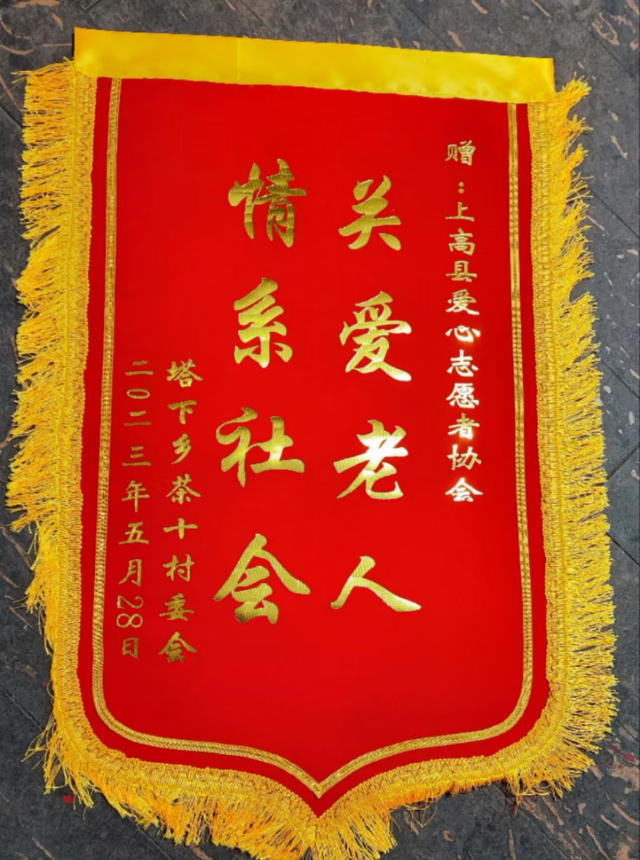 赠：上高县爱心志愿者协会
关爱老人
情系社会
塔下乡茶十村委会
二〇二三年五月28日